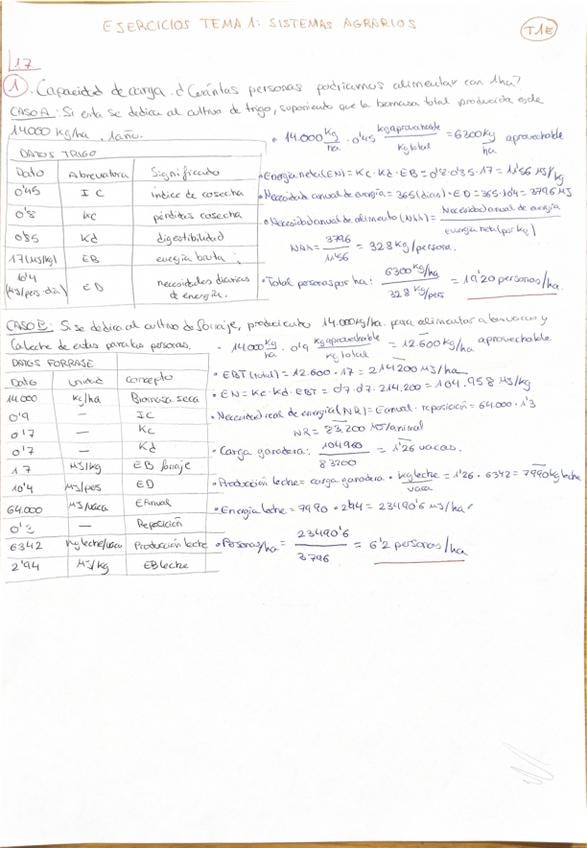 EJERCICIOS TEMA 1: SISTEMAS AGRARIOS
T1E
17
1. Capacidad de carga. ¿Cuántas personas podríamos alimentar con 1ha?
CASO A: Si esta se dedica al cultivo de trigo, suponiendo que la biomasa total producida es de
14000 kg/ha. 1año.
DATOS TRIGO
Dato Abreviatura Significado
0'45 IC índice de cosecha
0'8 Kc pérdidas cosecha
0'85 Kd digestibilidad
17 (MJ/kg) EB energía bruta
10'4 (MJ/pers·día) ED necesidades diarias de energía.
• 14.000 kg/ha · 0'45 kg aprovechable/kg total = 6300 kg/ha aprovechable
• Energía neta (EN) = Kc · Kd · EB = 0'8 · 0'85 · 17 = 11'56 MJ/kg
• Necesidad anual de energía = 365 (días) · ED = 365 · 10'4 = 3796 MJ
• Necesidad anual de alimento (NAh) = Necesidad anual de energía / energía neta (por kg)
NAh = 3796 / 11'56 = 328 kg/persona.
• Total personas por ha: 6300 kg/ha / 328 kg/pers = 19'20 personas/ha.
CASO B: Si se dedica al cultivo de forraje, produciendo 14.000kg/ha para alimentar a las vacas y
la leche de estas para las personas.
DATOS FORRAJE
Dato Unidad Concepto
14000 kg/ha Biomasa seca
0'9 — IC
0'7 — Kc
0'7 — Kd
17 MJ/kg EB forraje
10'4 MJ/pers ED
64.000 MJ/vaca E anual
0'3 — Reposición
6342 kg leche/vaca Producción leche
2'94 MJ/kg EB leche
• 14000 kg/ha · 0'9 kg aprovechable/kg total = 12.600 kg/ha aprovechable
• EBT (total) = 12.600 · 17 = 214200 MJ/ha
• EN = Kc · Kd · EBT = 0'7 · 0'7 · 214.200 = 104.958 MJ/kg
• Necesidad real de energía (NR) = E anual · reposición = 64.000 · 1'3
NR = 83,200 MJ/animal
• Carga ganadera: 104960 / 83200 = 1'26 vacas.
• Producción leche = carga ganadera · kg leche/vaca = 1'26 · 6342 = 7990 kg leche/ha
• Energía leche = 7990 · 2'94 = 23490'6 MJ/ha
• Personas/ha = 23490'6 / 3796 = 6'2 personas/ha